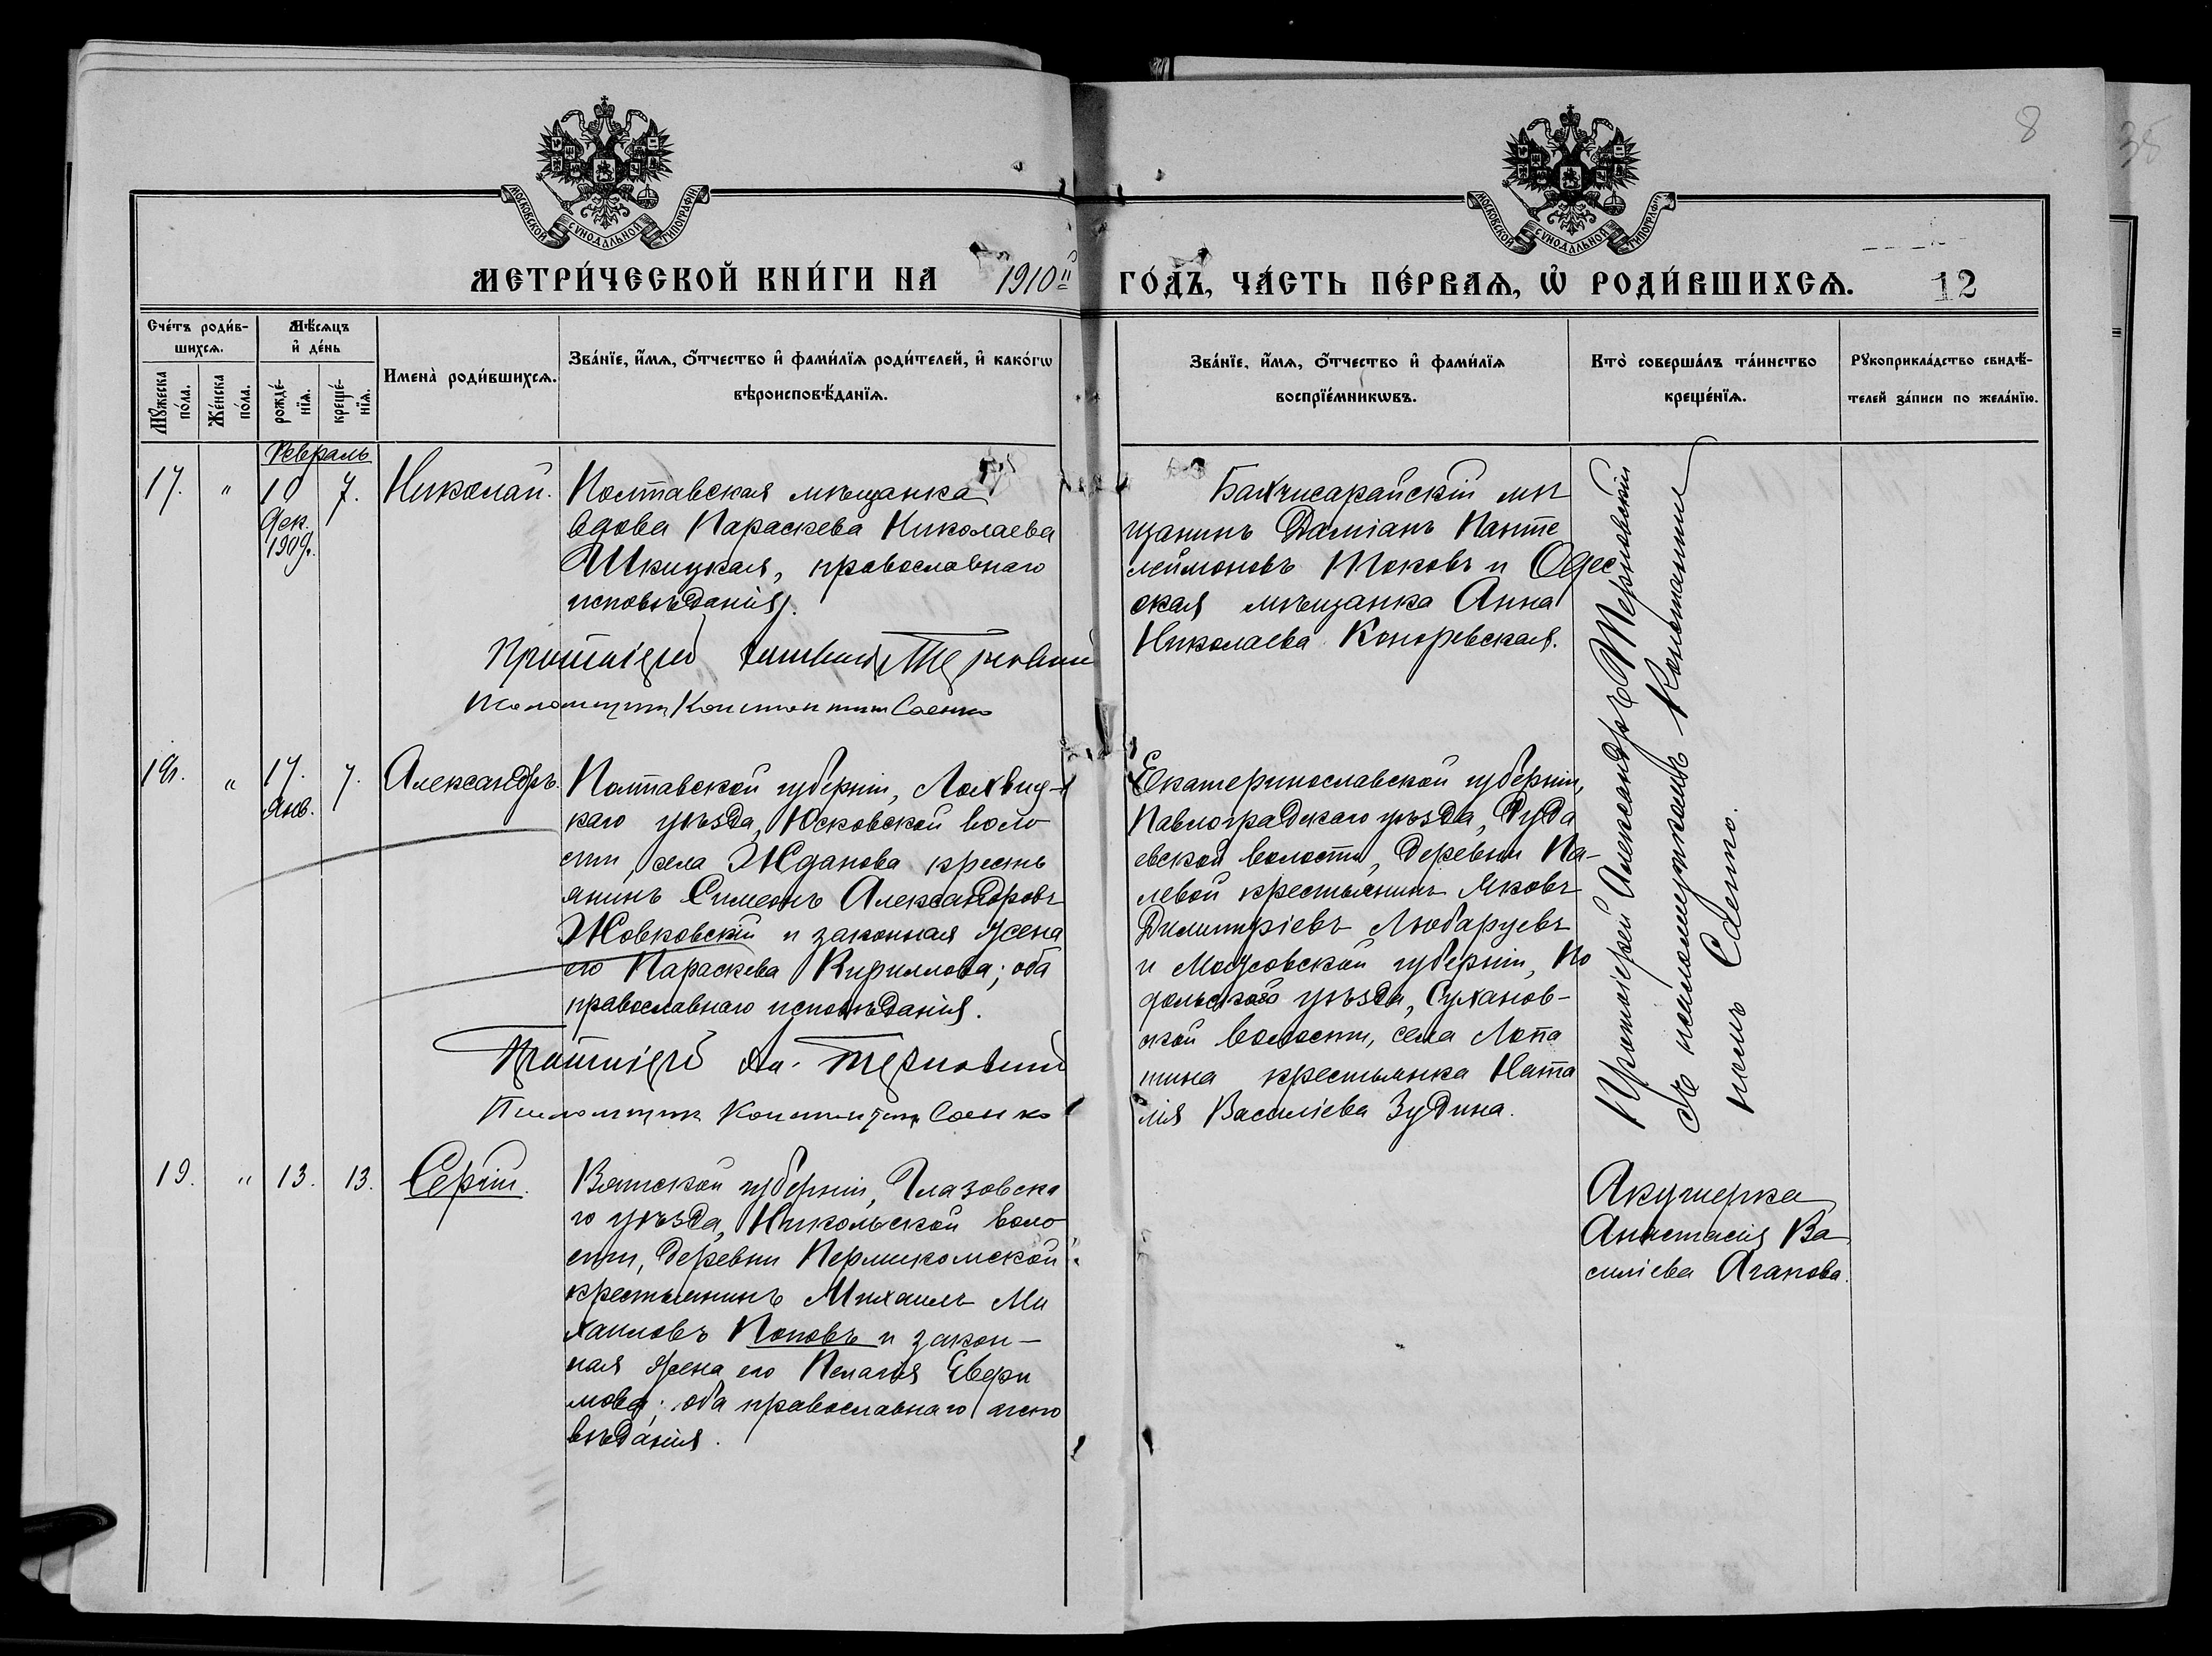 8
38
МОСКОВСКОЙ СѴНОДАЛЬНОЙ ТИПОГРАФІИ
МОСКОВСКОЙ СѴНОДАЛЬНОЙ ТИПОГРАФІИ
МЕТРИ́ЧЕСКОЙ КНИ́ГИ НА 1910й ГО́ДЪ, ЧА́СТЬ ПЕ́РВАѦ, Ѡ҆ РОДИ́ВШИХСѦ. 12
Сче́тъ роди́в-
шихсѧ.
Мѣ́сѧцъ
и҆ де́нь
Мꙋ́жеска
по́ла.
Же́нска
по́ла.
рожде́-
нїѧ.
креще́-
нїѧ.
Имена̀ роди́вшихсѧ.
Зва́нїе, и҆́мѧ, ѻ҆́тчество и҆ фами́лїѧ роди́телей, и҆ како́гѡ
вѣроисповѣ́данїѧ.
Зва́нїе, и҆́мѧ, ѻ҆́тчество и҆ фами́лїѧ
воспрїе́мникѡвъ.
Кто̀ соверша́лъ та́инство
креще́нїѧ.
Рꙋкоприкла́дство свидѣ́-
телей за́писи по жела́нїю.
Февраль
17. " 10 Дек. 1909г. 7. Николай.
Полтавская мѣщанка
вдова Параскева Николаева
Шкицкая, православнаго
исповѣданія.
Протоіерей Терновский
Псаломщик Константин Саенко
Бахчисарайскій мѣ
щанинъ Даміанъ Панте
леймоновъ Токовъ и Одес
ская мѣщанка Анна
Николаева Коноревская.
Протоіерей Александръ Терновскій
съ псаломщикомъ Константи
номъ Саенко.
18. " 17. Янв. 7. Александръ.
Полтавской губерніи, Лохвиц-
каго уѣзда, Юсковской воло
сти, села Жданова кресть
янинъ Симеонъ Александровъ
Жовковскій и законная жена
его Параскева Кириллова; оба
православнаго исповѣданія.
Протоіерей Ал. Терновский
Псаломщик Константин Саенко
Екатеринославской губерніи,
Павлоградскаго уѣзда,
евской волости, деревни Па-
левой крестьянинъ Яковъ
Димитріевъ Любарцевъ
и Московской губерніи, По
дольскаго уѣзда, Суханов-
ской волости, села Лопа
тина крестьянка Ната
лія Василіева Зудина.
19. " 13. 13. Сергій.
Вятской губерніи, Глазовска
го уѣзда, Никольской воло
сти, деревни
крестьянинъ Михаилъ Ми
хаиловъ Поповъ и закон-
ная жена его Пелагія Евфи
мова; оба православнаго испо
вѣданія.
Акушерка
Анастасія Ва
силіева Агапова.